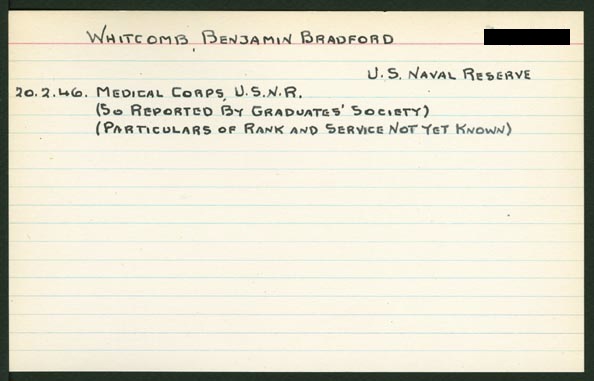 Whitcomb, Benjamin Bradford
U.S. Naval Reserve
20.2.46. Medical Corps, U.S.N.R.
(So Reported By Graduates' Society)
(Particulars of Rank and Service Not Yet Known)